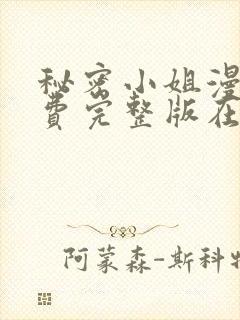 秘密小姐漫
费完整版在
阿蒙森-斯科特